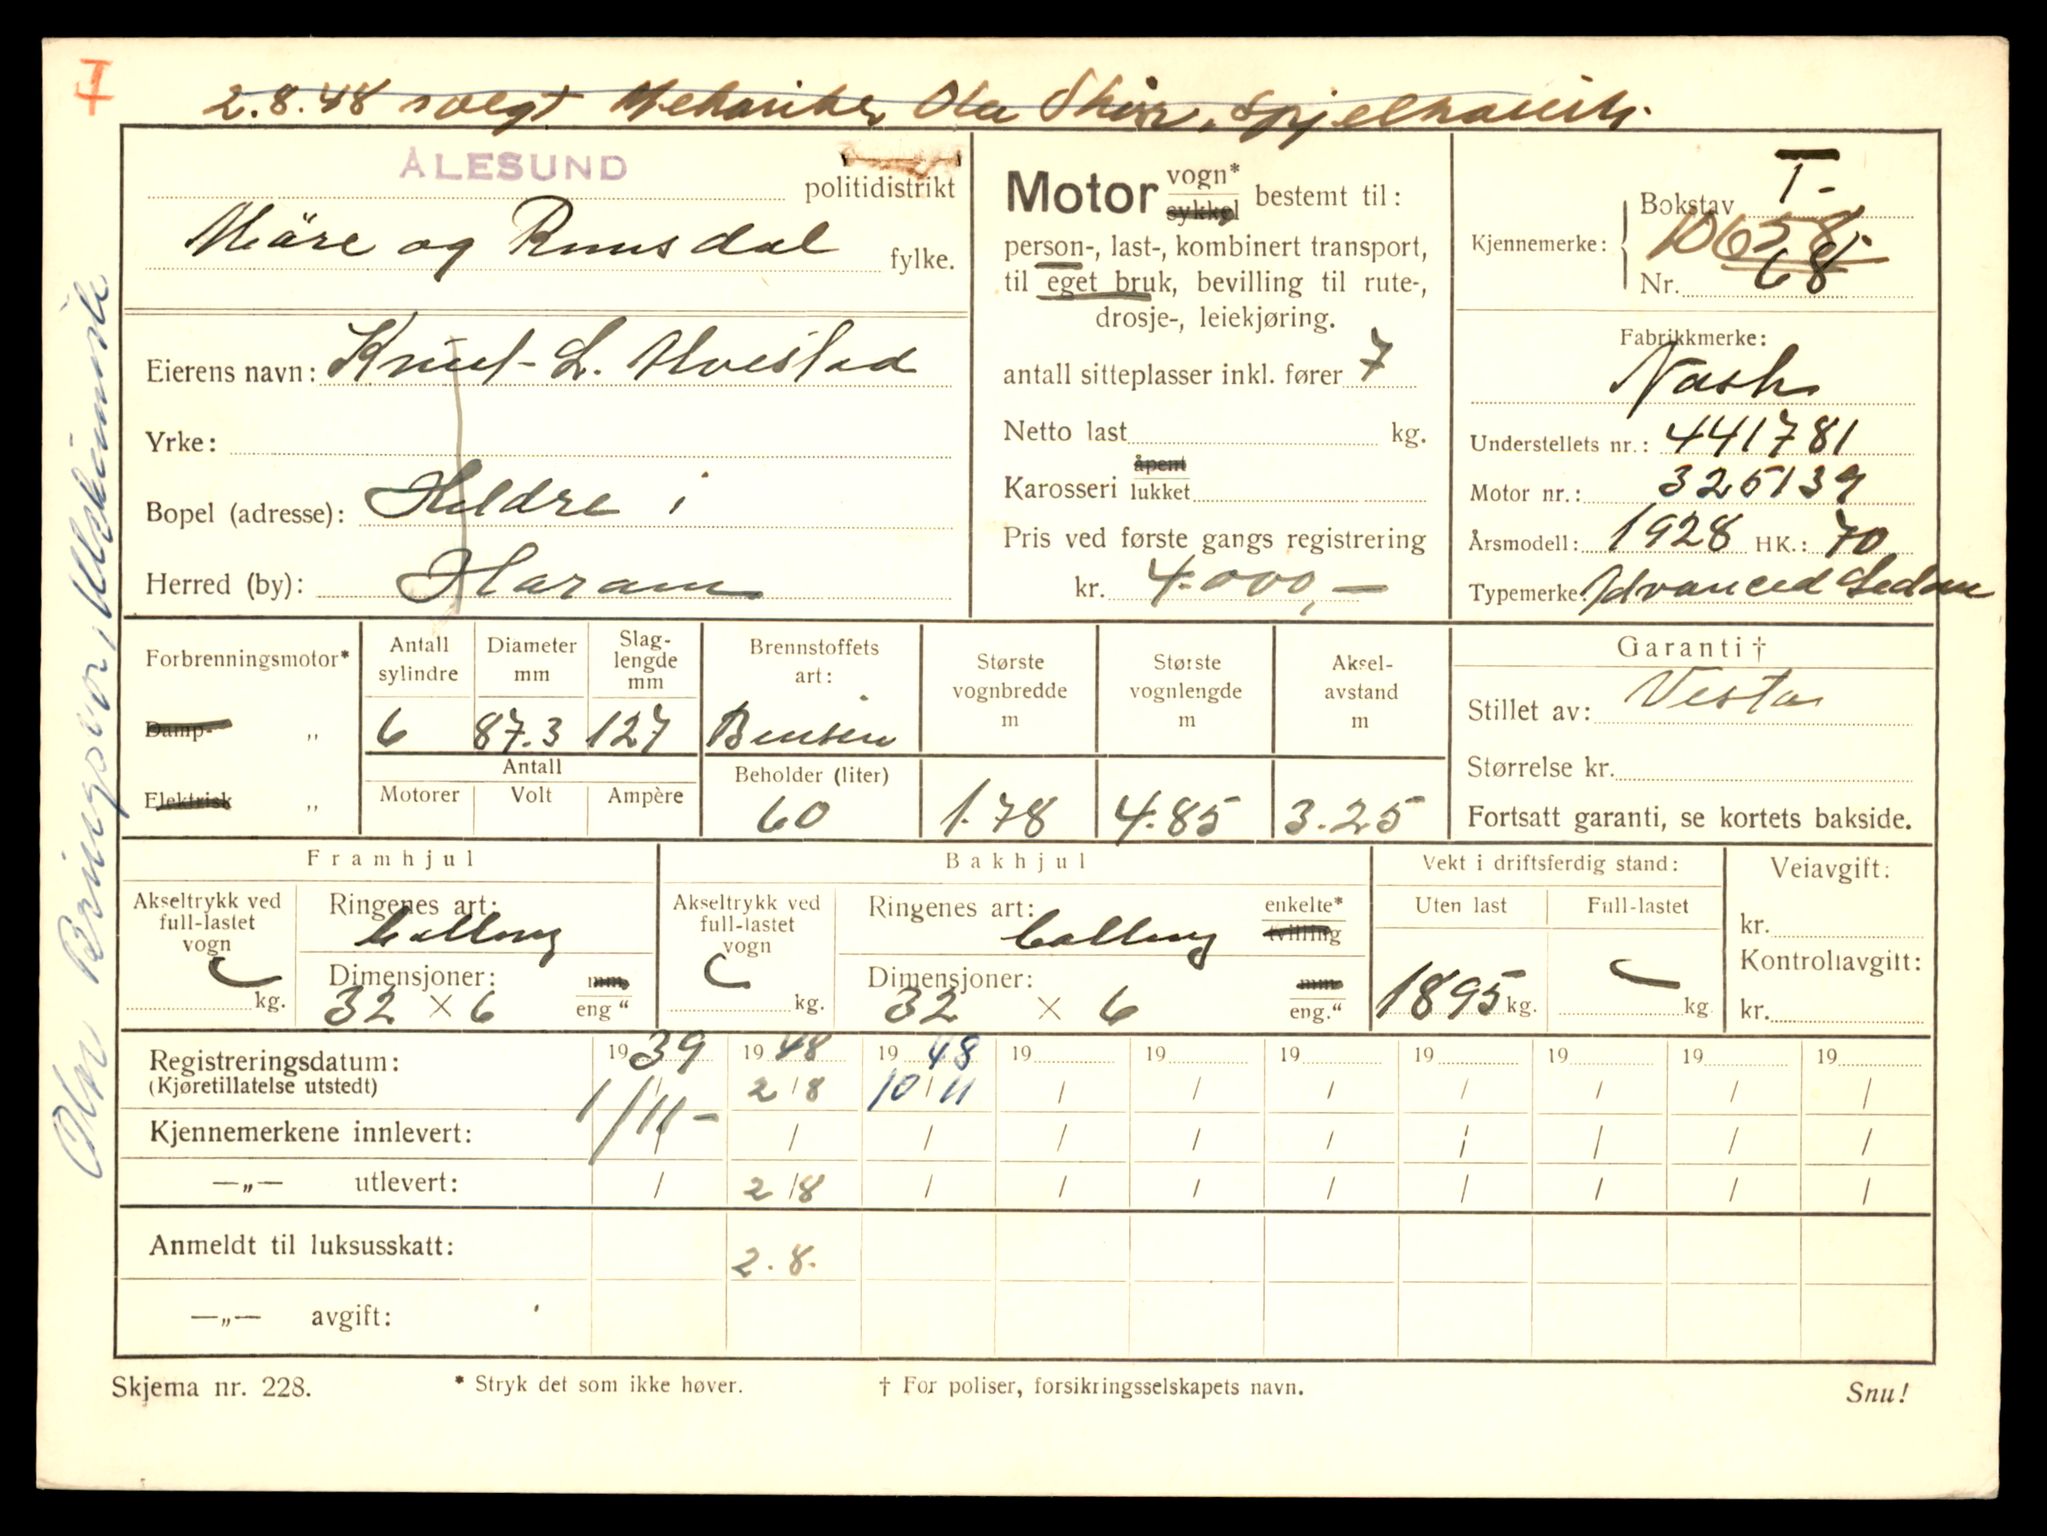 7
2.8.48 solgt Mekaniker Ola Skår, Spjelkavik.
ÅLESUND politidistrikt
Märe og Romsdal fylke.
Eierens navn: Knut L. Hvestad
Yrke:
Bopel (adresse): Hildre i
Herred (by): Haram
Motor vogn* sykkel bestemt til:
person-, last-, kombinert transport,
til eget bruk, bevilling til rute-,
drosje-, leiekjøring.
antall sitteplasser inkl. fører 7
Netto last kg.
Karosseri åpent lukket
Pris ved første gangs registrering
kr. 4.000,—
Kjennemerke: Bokstav T-
10658.
Nr. 68
Fabrikkmerke:
Nash
Understellets nr.: 441781
Motor nr.: 325139
Årsmodell: 1928 HK.: 70
Typemerke: Advanced Sedan
Forbrenningsmotor*
Damp- „
Elektrisk „
Antall sylindre
6
Diameter mm
87.3
Slag- lengde mm
127
Antall
Motorer Volt Ampère
Brennstoffets art:
Bensin
Beholder (liter)
60
Største vognbredde m
1.78
Største vognlengde m
4.85
Aksel- avstand m
3.25
Garanti †
Stillet av: Vesta
Størrelse kr.
Fortsatt garanti, se kortets bakside.
Framhjul
Akseltrykk ved full-lastet vogn
kg.
Ringenes art:
Dimensjoner: mm
32 × 6 eng“
Bakhjul
Akseltrykk ved full-lastet vogn
kg.
Ringenes art: enkelte* tvilling
Dimensjoner: mm
32 × 6 eng.“
Vekt i driftsferdig stand:
Uten last Full-lastet
1895 kg. kg
Veiavgift:
kr.
Kontrollavgift:
kr.
Registreringsdatum: 1939 1948 1948 19 19 19 19 19 19 19
(Kjøretillatelse utstedt) 1/11- 2/8 10/11 / / / / / / /
Kjennemerkene innlevert: / / / / / / / / / /
—„— utlevert: / 2/8 / / / / / / / /
Anmeldt til luksusskatt: 2.8.
—„— avgift:
Skjema nr. 228. * Stryk det som ikke høver. † For poliser, forsikringsselskapets navn. Snu!